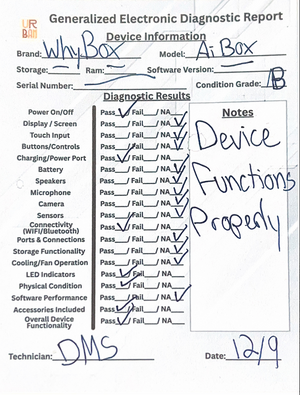 UR
BAN
Generalized Electronic Diagnostic Report
Device Information
Brand: WhyBox Model: Ai Box
Storage: Ram: Software Version:
Serial Number: Condition Grade: B
Diagnostic Results
Power On/Off Pass✓/ Fail__/ NA__
Display / Screen Pass__/ Fail__/ NA✓
Touch Input Pass__/ Fail__/ NA✓
Buttons/Controls Pass__/ Fail__/ NA✓
Charging/Power Port Pass✓/ Fail__/ NA__
Battery Pass__/ Fail__/ NA✓
Speakers Pass__/ Fail__/ NA✓
Microphone Pass__/ Fail__/ NA✓
Camera Pass__/ Fail__/ NA✓
Sensors Pass__/ Fail__/ NA✓
Connectivity
(WIFI/Bluetooth) Pass✓/ Fail__/ NA__
Ports & Connections Pass__/ Fail__/ NA✓
Storage Functionality Pass__/ Fail__/ NA✓
Cooling/Fan Operation Pass__/ Fail__/ NA✓
LED Indicators Pass✓/ Fail__/ NA__
Physical Condition Pass✓/ Fail__/ NA__
Software Performance Pass__/ Fail__/ NA✓
Accessories Included Pass✓/ Fail__/ NA__
Overall Device
Functionality Pass✓/ Fail__/ NA__
Notes
Device
Functions
Properly
Technician: DMS Date: 12/9